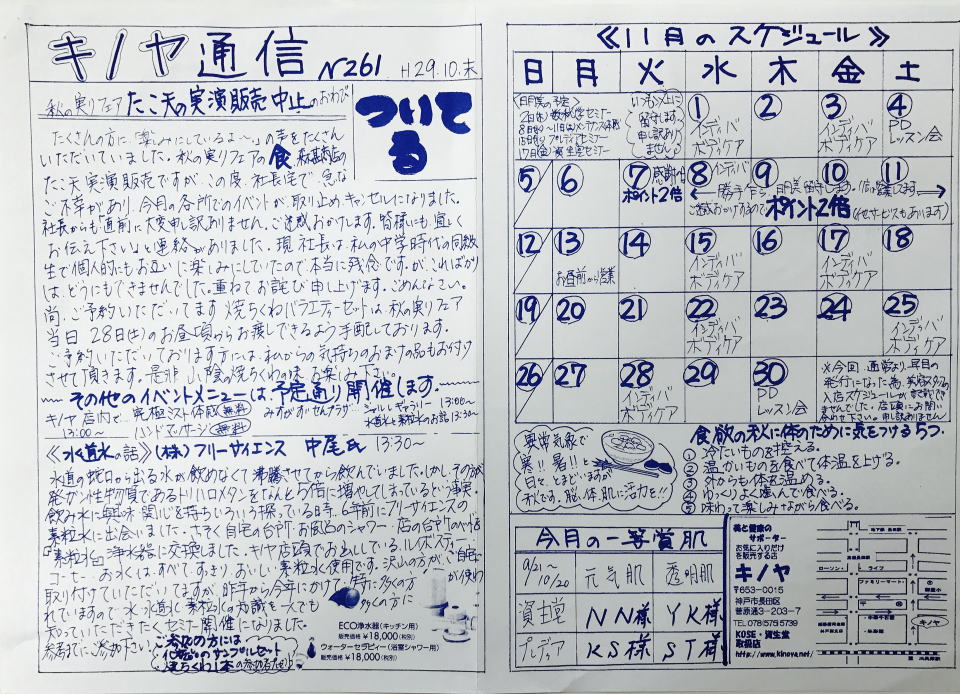 キノヤ通信 N261 H29.10.末
秋の実りフェア たこ天の実演販売 中止のおわび
ついてる
たくさんの方に「楽しみにしているよ～」の声をたくさん
いただいていました。秋の実りフェアの食
たこ天実演販売ですが、この度、社長宅で、急な
ご不幸があり、今月の各所でのイベントが取り止め、キャンセルになりました。
社長からも直前に大変申し訳ありません。ご迷惑おかけします。皆様にも宜しく
お伝え下さい」と連絡がありました。現社長は、私の中学時代の同級
生で個人的にもお互いに楽しみにしていたので本当に残念です。が、こればかり
は、どうにもできませんでした。重ねてお詫び申し上げます。ごめんなさい。
尚、ご予約いただいてます 焼ちくわバラエティーセットは、秋の実りフェア
当日 28日(土)のお昼頃からお渡しできるよう手配しております。
ご予約いただいております方には、私からの気持ちのおまけの品もお付け
させて頂きます。是非、山陰の焼ちくわの味を楽しみ下さい。
その他のイベントメニューは予定通り開催します。
キノヤ店内で、究極ミスト体感 無料
13:00～ ハンドマッサージ 無料
13:00～
水道水と素粒水のお話 13:30～
≪水道水の話≫ (株)フリーサイエンス 中尾氏 13:30～
水道の蛇口から出る水が飲めなくて沸騰させてから飲んでいました。しかし、その方が
発ガン性物質であるトリハロメタンをなんと5倍に増やしてしまっているという事実。
飲み水に興味関心を持ちいろいろ探っている時、6年前にフリーサイエンスの
素粒水に出会いました。さっそく自宅の台所、お風呂のシャワー、店の台所の
「素粒水」浄水器に交換しました。キノヤ店頭でお出ししている、ルイボスティー、
コーヒー、お水は、すべて、すっきり、おいしい素粒水使用です。沢山の方が、ご自宅に
取り付けていただいてますが、昨年から今年にかけて特に多くの方が使わ
れていますので、水・水道水・素粒水の知識を一人でも多くの方に
知っていただきたくセミナー開催になりました。
参考までにご参加下さい。
ご参加の方には
サンプルセット
焼ちくわ1本
ECO浄水器(キッチン用)
販売価格 ¥18,000(税別)
ウォーターセラピィー(浴室シャワー用)
販売価格 ¥18,000(税別)
≪11月のスケジュール≫
日 月 火 水 木 金 土
≪明美の予定≫
17日(金) 資生堂セミナー
いつも以上に
留守します。
申し訳あり
ません。
1 インディバ ボディケア
2
3 インディバ ボディケア
4 PD レッスン会
5
6
7 感謝価 ポイント2倍
8 インディバ
9
10
11
勝手ながら、明美留守します。店は営業します。
ご迷惑おかけするので ポイント2倍 (他サービスもあります)
12
13 お昼前から営業
14
15 インディバ ボディケア
16
17 インディバ ボディケア
18
19
20
21
22 インディバ ボディケア
23
24
25 インディバ ボディケア
26
27
28 インディバ ボディケア
29
30 PD レッスン会
※今回、通常より、早目の
発行になった為、美容スタッフの
入店スケジュールが、まだ載せ
できませんでした。店頭にお問い
合わせ下さい。申し訳ありません!
異常気象で
寒!! 暑!! と
日々、とまどいますが
秋です。脳、体、肌に活力を!!
食欲の秋に体のために気をつける5つ.
① 冷たいものを控える。
② 温かいものを食べて体温を上げる。
③ 外からも体を温める。
④ ゆっくりよく噛んで食べる。
⑤ 味わって楽しみながら食べる。
今月の一等賞肌
9/21～10/20 元気肌 透明肌
資生堂 NN様 YK様
プレディア KS様 ST様
美と健康の
サポーター
お気に入りだけ
を販売する店
キノヤ
〒653-0015
神戸市長田区
菅原通3-203-7
TEL 078(575)5739
KOSE・資生堂
取扱店
http://www.kinoya.net/
ローソン
ライフ
ファミリーマート
キノヤ